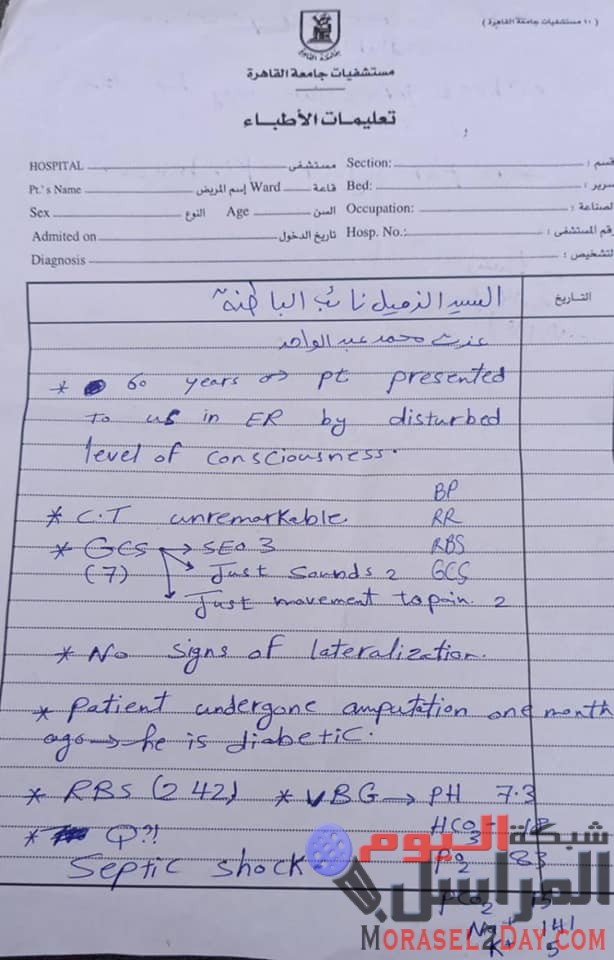 ( ١٠ مستشفيات جامعة القاهرة )
جامعة القاهرة
مستشفيات جامعة القاهرة
تعليمات الأطباء
HOSPITAL مستشفى Section: قسم :
Pt.'s Name إسم المريض Ward قاعة Bed: سرير :
Sex النوع Age السن Occupation: الصناعة :
Admited on تاريخ الدخول Hosp. No.: رقم المستشفى :
Diagnosis التشخيص :
التاريخ
السيد الزميل نائب الباطنة
عزت محمد عبد الواحد
* 60 years pt presented
To us in ER by disturbed
level of consciousness.
BP
* C.T unremarkable RR
* GCS → SEO 3 RBS
(7) Just sounds 2 GCS
Just movement to pain 2
* No signs of lateralization.
* patient undergone amputation one month
ago → he is diabetic.
* RBS (242) * VBG → PH 7.3
* Q?! HCO3
Septic shock PO2 83
PCO2 15
Na+ 141
K+ 5
شبكة اليوم
المراسل
MORASEL2DAY.COM